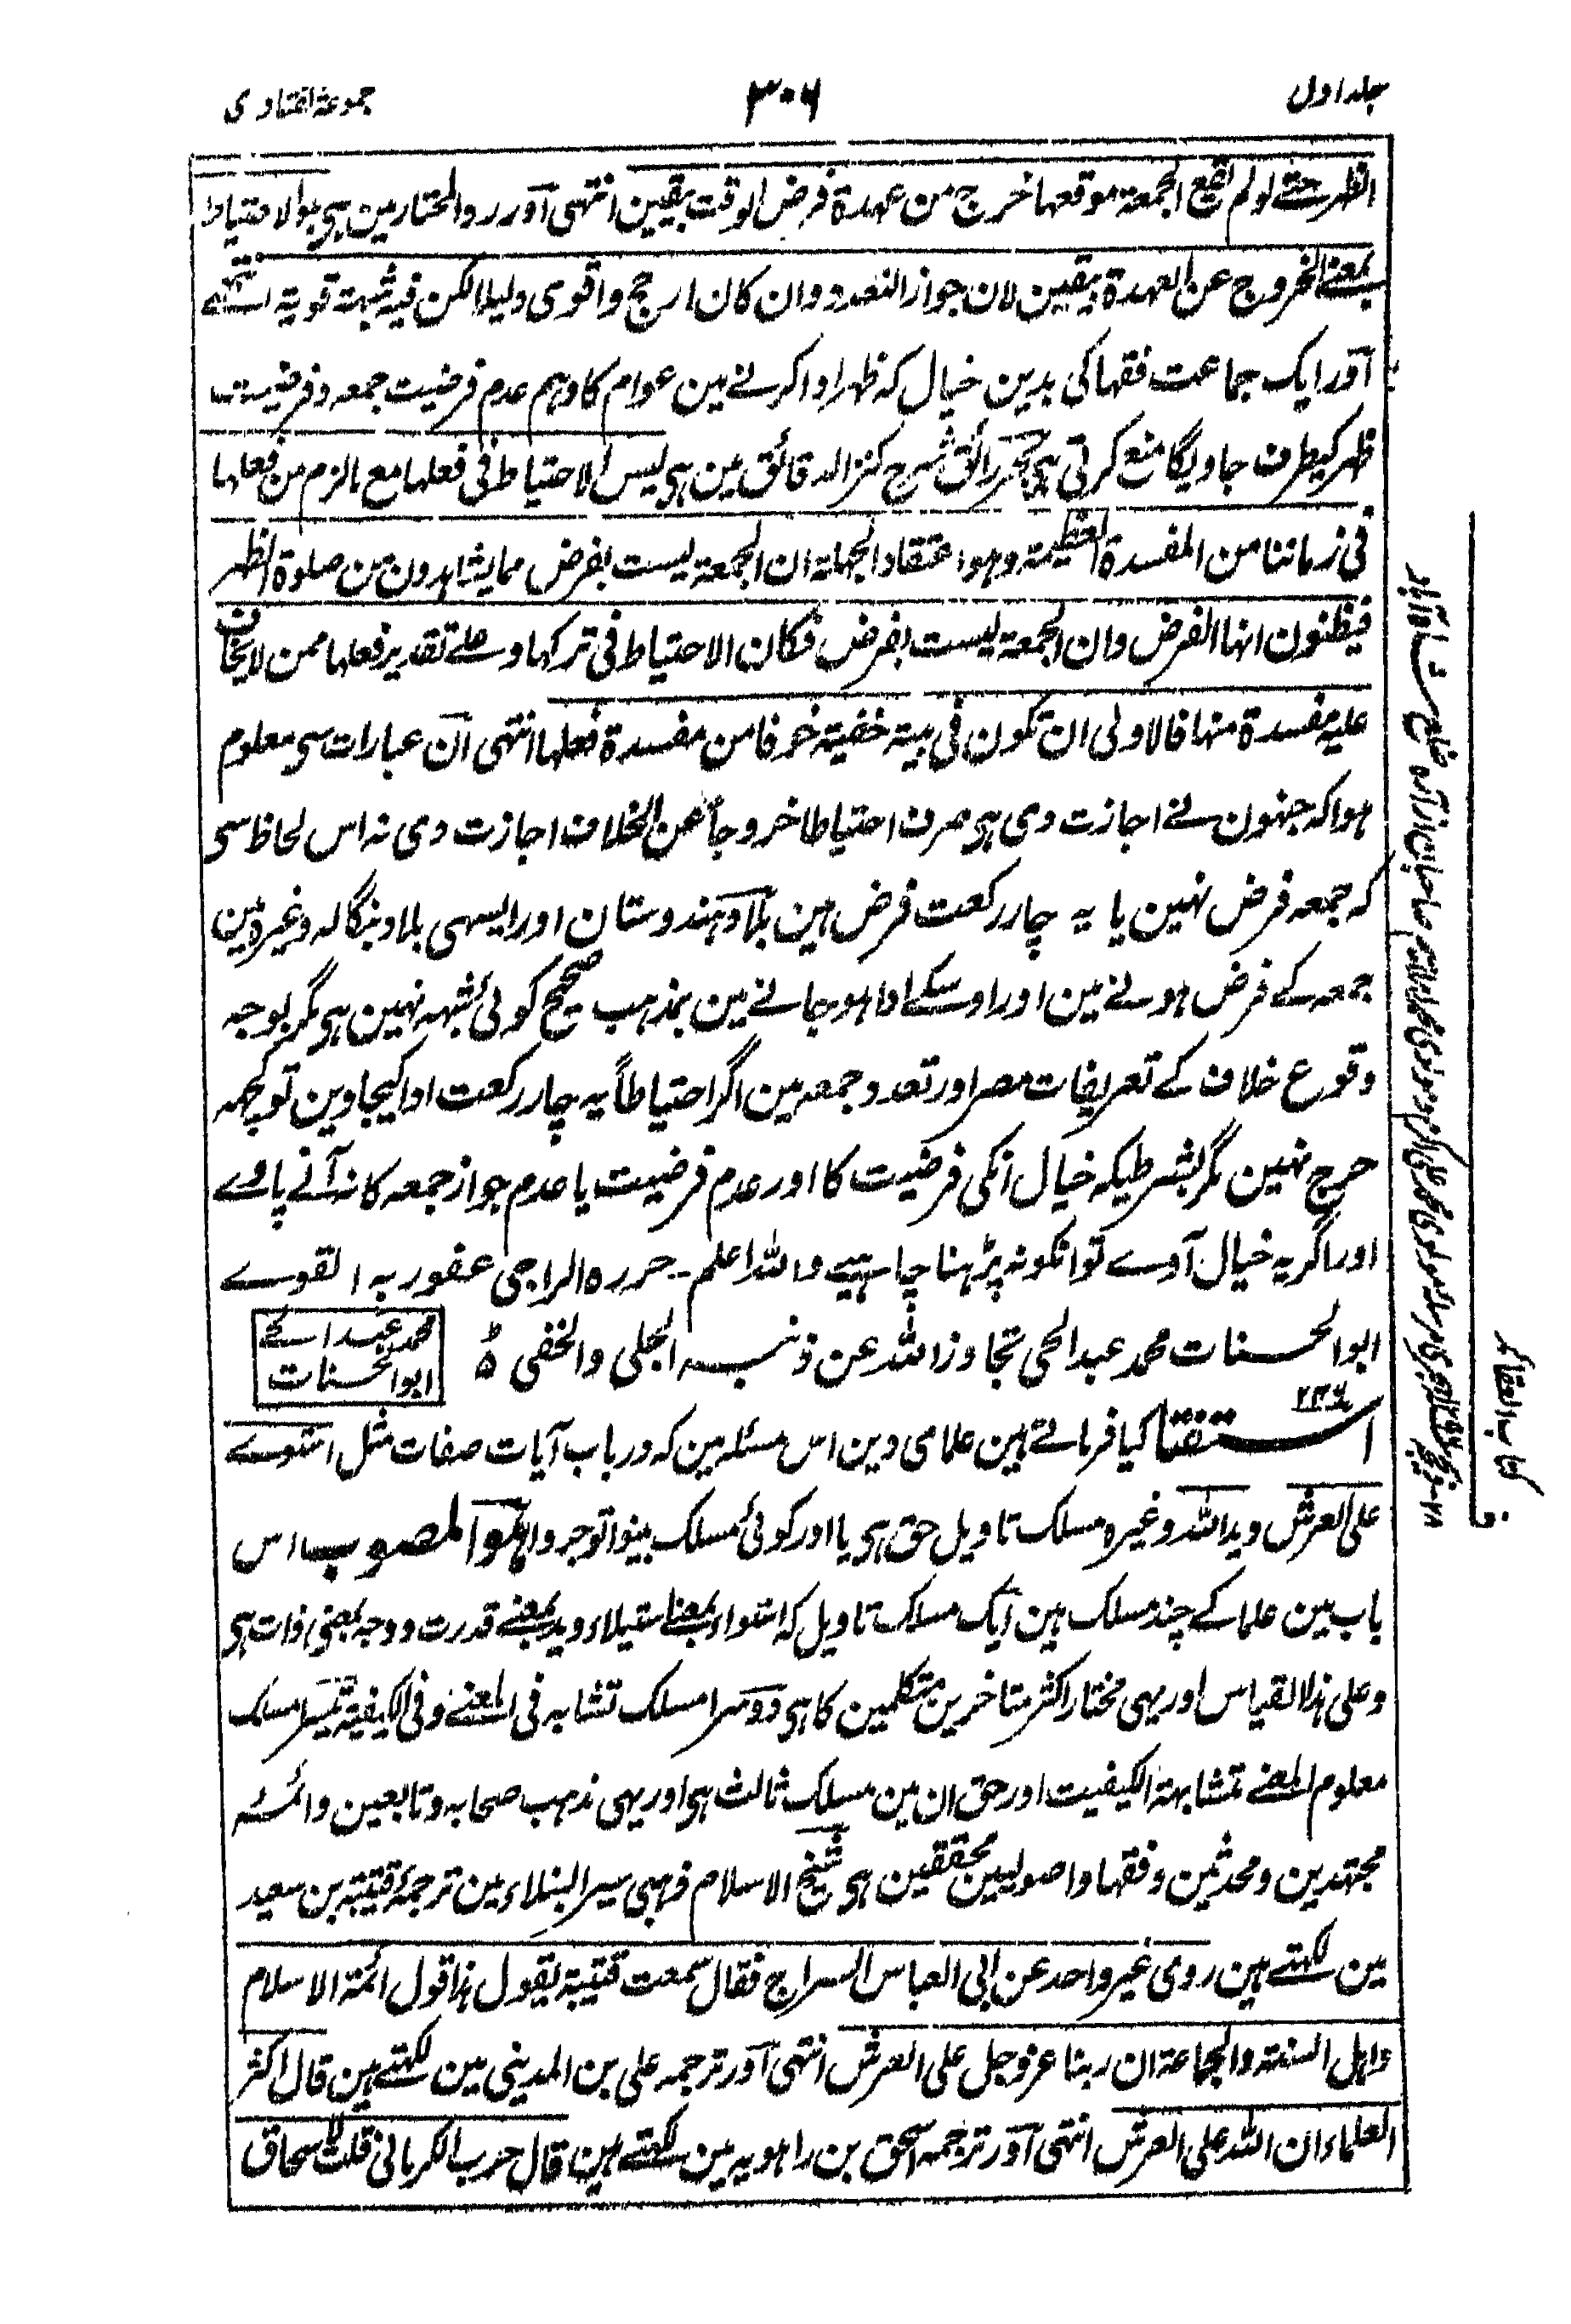 جلد اول
۳۰۶
مجموعۃ الفتاوی
الظہر حتے لو لم تقع الجمعۃ موقعہا خرج من عہدۃ فرض الوقت بیقین انتہی اور رد المحتار مین ہی ہو الاحتیاط
بمعنے الخروج عن العہدۃ بیقین لان جواز التعدد و ان کان ارجح و اقوی دلیلا لکن فیہ شبہۃ قویۃ انتہے
اور ایک جماعت فقہا کی بدین خیال کہ ظہر ادا کرنے مین عوام کا وہم عدم فرضیت جمعہ و فرضیت
ظہر کیطرف جاویگا منع کرتی ہی بحر رائق شرح کنز الدقائق مین ہی لیس الاحتیاط فی فعلہا مع مالزم من فعلہا
فی زماننا من المفسدۃ العظیمۃ وہو اعتقاد الجہلۃ ان الجمعۃ لیست بفرض مما یشاہدون من صلوۃ الظہر
فیظنون انہا الفرض وان الجمعۃ لیست بفرض فکان الاحتیاط فی ترکہا و علے تقدیر فعلہا ممن لا یخاف
علیہ مفسدۃ منہا فالاولی ان تکون فی بیتہ خفیۃ خوفا من مفسدۃ فعلہا انتہی ان عبارات سی معلوم
ہوا کہ جنہون نے اجازت دی ہی صرف احتیاطا خروجاً عن الخلاف اجازت دی نہ اس لحاظ سی
کہ جمعہ فرض نہین یا یہ چار رکعت فرض ہین بلاد ہندوستان اور ایسہی بلاد بنگالہ وغیرہ مین
جمعہ کے فرض ہونے مین اور اوسکے ادا ہو جانے مین بمذہب صحیح کوئی شبہہ نہین ہی مگر بوجہ
وقوع خلاف کے تعریفات مصر اور تعدد جمعہ مین اگر احتیاطاً یہ چار رکعت ادا کیجاوین تو کچہہ
حرج نہین مگر بشرطیکہ خیال انکی فرضیت کا اور عدم فرضیت یا عدم جواز جمعہ کا نہ آنے پاوے
اور اگر یہ خیال آوے تو انکو نہ پڑہنا چاہیے واللہ اعلم۔ حررہ الراجی عفو ربہ القوے
ابو الحسنات محمد عبد الحی تجاوز اللہ عن ذنبہ الجلی والخفی
محمد عبد الحے
ابو الحسنات
استفتا کیا فرماتے ہین علمای دین اس مسئلہ مین کہ درباب آیات صفات مثل استوے
علی العرش وید اللہ وغیرہ مسلک تاویل حق ہی یا اور کوئی مسلک بینوا توجروا ہو المصوب اس
باب مین علما کے چند مسلک ہین ایک مسلک تاویل کہ استواء بمعنے استیلاء و ید بمعنے قدرت و وجہ بمعنی ذات ہی
وعلی ہذا القیاس اور یہی مختار اکثر متاخرین متکلمین کا ہی دوسرا مسلک تشابہ فی المعنے وفی الکیفیۃ تیسرا مسلک
معلوم المعنے متشابہۃ الکیفیت اور حق ان مین مسلک ثالث ہی اور یہی مذہب صحابہ و تابعین و ائمہ
مجتہدین و محدثین و فقہا و اصولیین محققین ہی شیخ الاسلام ذہبی سیر النبلاء مین ترجمۂ قتیبۃ بن سعید
مین لکہتے ہین روی غیر واحد عن ابی العباس السراج فقال سمعت قتیبۃ یقول ہذا قول ائمۃ الاسلام
و اہل السنۃ والجماعۃ ان ربنا عز وجل علی العرش انتہی اور ترجمہ علی بن المدینی مین لکہتے ہین قال اکثر
العلماء ان اللہ علی العرش انتہی اور ترجمہ اسحق بن راہویہ مین لکہتے ہین قال حرب الکرمانی قلت لاسحاق
کتاب العقائد